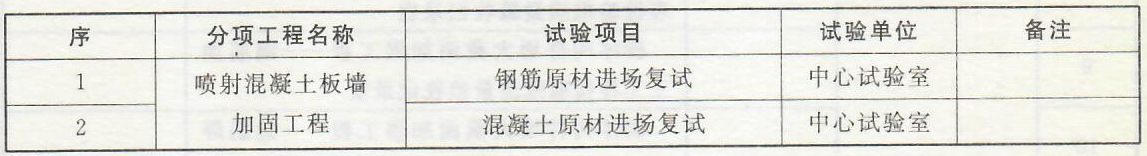 序 分项工程名称 试验项目 试验单位 备注
1 喷射混凝土板墙 钢筋原材进场复试 中心试验室
2 加固工程 混凝土原材进场复试 中心试验室